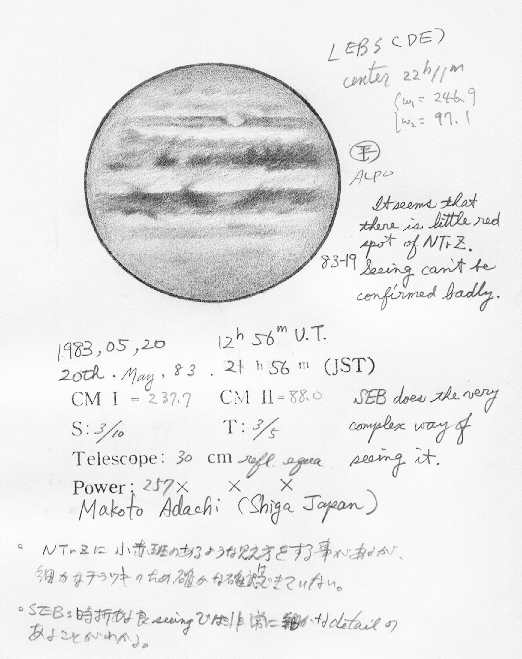 LEBS (DE)
center 22h 11m
ω1 = 246.9
ω2 = 97.1
ALPO
It seems that
there is little red
spot of NTrZ.
83-19 Seeing can't be
confirmed badly.
1983, 05, 20 12h 56m U.T.
20th. May, 83. 21 h 56 m (JST)
CM I = 237.7 CM II = 88.0
S: 3/10 T: 3/5
SEB does the very
complex way of
seeing it.
Telescope: 30 cm refl. equa
Power: 257× × ×
Makoto Adachi (Shiga Japan)
。NTrZに小赤斑のあるような見え方をする事があるが、
細かなチラツキのため確かな確認できていない。
・SEBs時折な良seeingでは非常に細かなdetailの
あることがわかる。